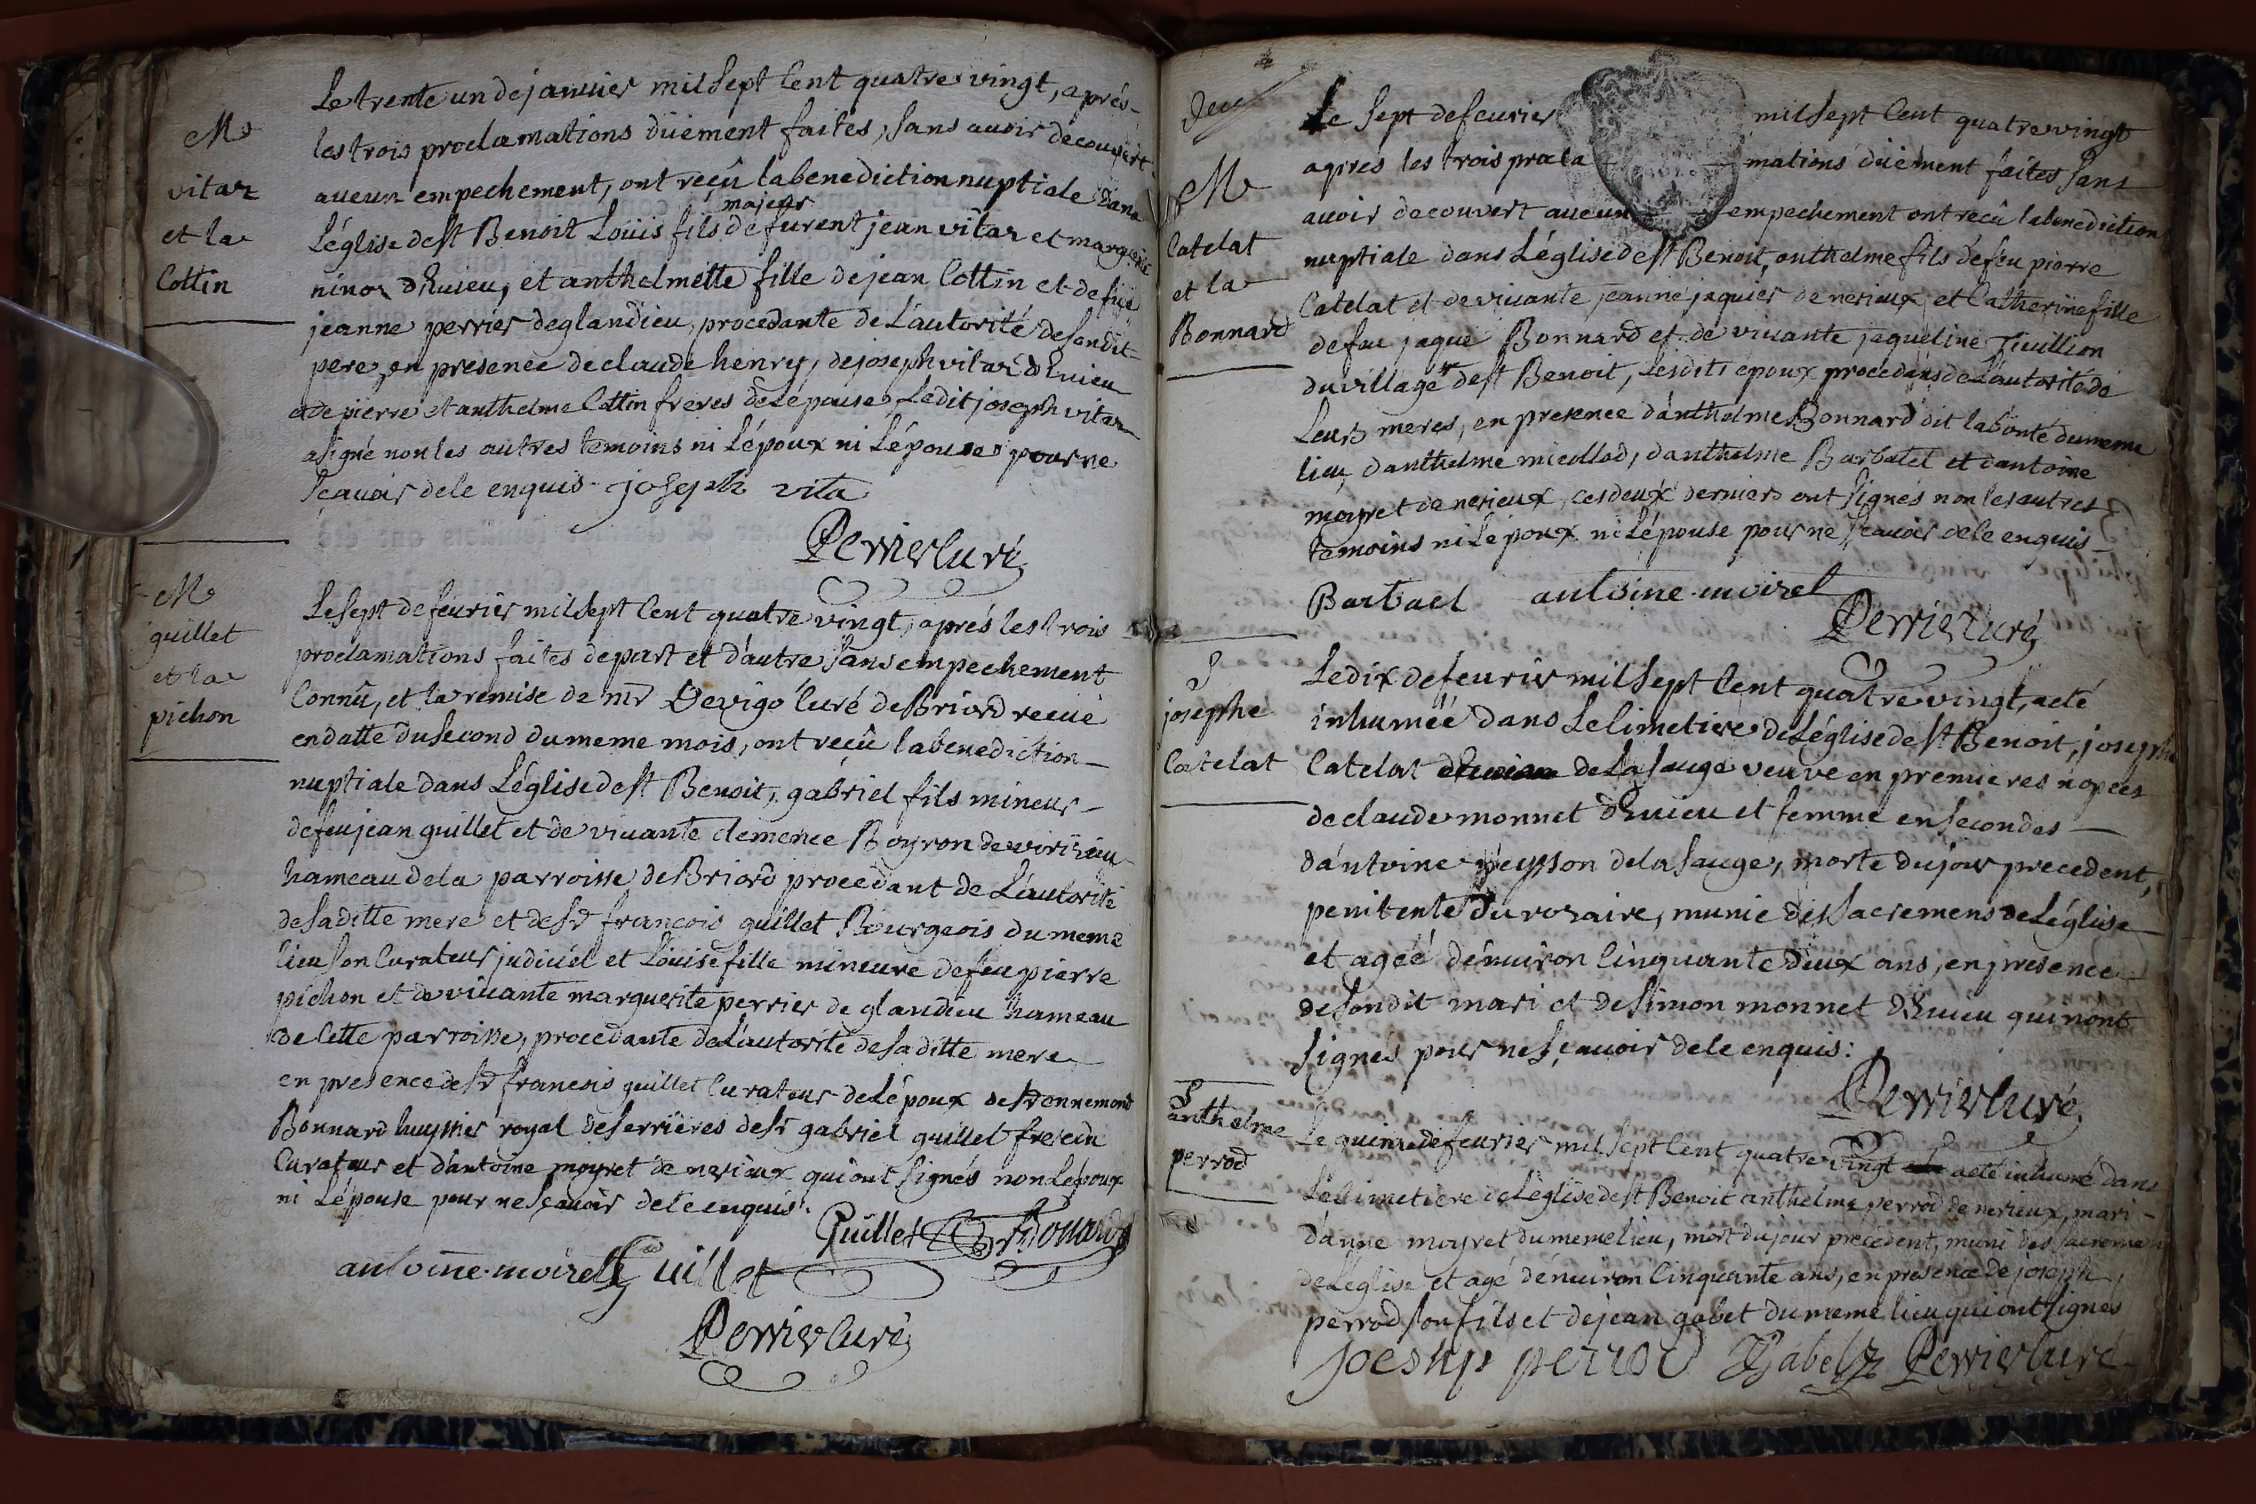 M
vitaz
et la
Cottin
Le trente un de janvier mil sept Cent quatre vingt, aprés
les trois proclamations düement faites, sans avoir decouvert
aucun empechement, ont reçû la benediction nuptiale dans
L'église de st Benoit Loüis fils majeur de furent jean vitaz et marguerite
ninoz d'Evieu, et anthelmette fille de jean Cottin et de füe
jeanne perrier de glandieu, procedante de L'autorité de son dit
pere, en presence de claude henry, de joseph vitaz d'Evieu
et de pierre et anthelme Cottin freres de L'épouse, Le dit joseph vitaz
a signé non les autres temoins ni L'époux ni L'épouse pour ne
sçavoir de le enquis. joseph vita
Perrier Curé
M
guillet
et la
pichon
Le sept de fevrier mil sept Cent quatre vingt, aprés les trois
proclamations faites de part et d'autre sans empechement
Connû, et la remise de mr Devigo Curé de Briord recue
en datte du second du meme mois, ont reçû la benediction
nuptiale dans L'église de st Benoit, gabriel fils mineur
de feu jean guillet et de vivante clemence Boyron de
hameau de la parroisse de Briord procedant de L'autorité
de sa ditte mere et de sr francois guillet Bourgeois du meme
lieu son Curateur judiciél et Loüise fille mineure de feu pierre
pichon et de vivante marguerite perrier de glandieu hameau
de Cette parroisse, procedante de L'autorité de sa ditte mere
en presence de sr francois guillet Curateur de L'époux de sr Donnemond
Bonnard huyssier royal de serriéres de sr gabriel guillet frere du
Curateur et d'antoine moyret de nerieux qui ont signés non L'époux
ni L'épouse pour ne sçavoir de le enquis.
Guillet Bonard
antoine moiret Guillet
Perrier Curé
M
Catelat
et la
Bonnard
Le sept de fevrier mil sept Cent quatre vingt
apres les trois procla mations düement faites sans
avoir decouvert aucun empechement ont recû la benediction
nuptiale dans L'église de st Benoit, anthelme fils de feu pierre
Catelat et de vivante jeanne jaquier de nerieux, et Catherine fille
de feu jaque Bonnard et de vivante jaqueline Tivillion
du village de st Benoit, Lesdits époux procedans de L'autorité de
Leurs meres, en presence d'anthelme Bonnard dit la bonté du meme
lieu, d'anthelme micollod, d'anthelme Barbatel et d'antoine
moyret de nerieux, ces deux derniers ont signés non les autres
temoins ni L'époux ni L'épouse pour ne sçavoir de le enquis
Barbael antoine moiret
Perrier Curé
S
josephe
Catelat
Le dix de fevrier mil sept Cent quatre vingt, a eté
inhumée dans Le Cimetiere de L'église de st Benoit, josephe
Catelat de La sauge veuve en premieres nopces
de claude monnet d'Evieu et femme en secondes
d'antoine peysson de la sauge, morte du jour precedent,
penitente du rozaire, munie des sacremens de L'église
et ageé d'environ Cinquante deux ans, en presence
de son dit mari et de simon monnet d'Evieu qui n'ont
signés pour ne sçavoir de le enquis:
Perrier Curé
S
anthelme
perrod
Le quinze de fevrier mil sept Cent quatre vingt a eté inhumé dans
Le Cimetiere de L'église de st Benoit anthelme perrod de nerieux, mari
d'anne moyret du meme lieu, mort du jour precedent, muni des sacremens
de L'église et agé d'environ Cinquante ans, en presence de joseph
perrod son fils et de jean gabet du meme lieu qui ont signes
joeshp perrod J Gabet Perrier Curé